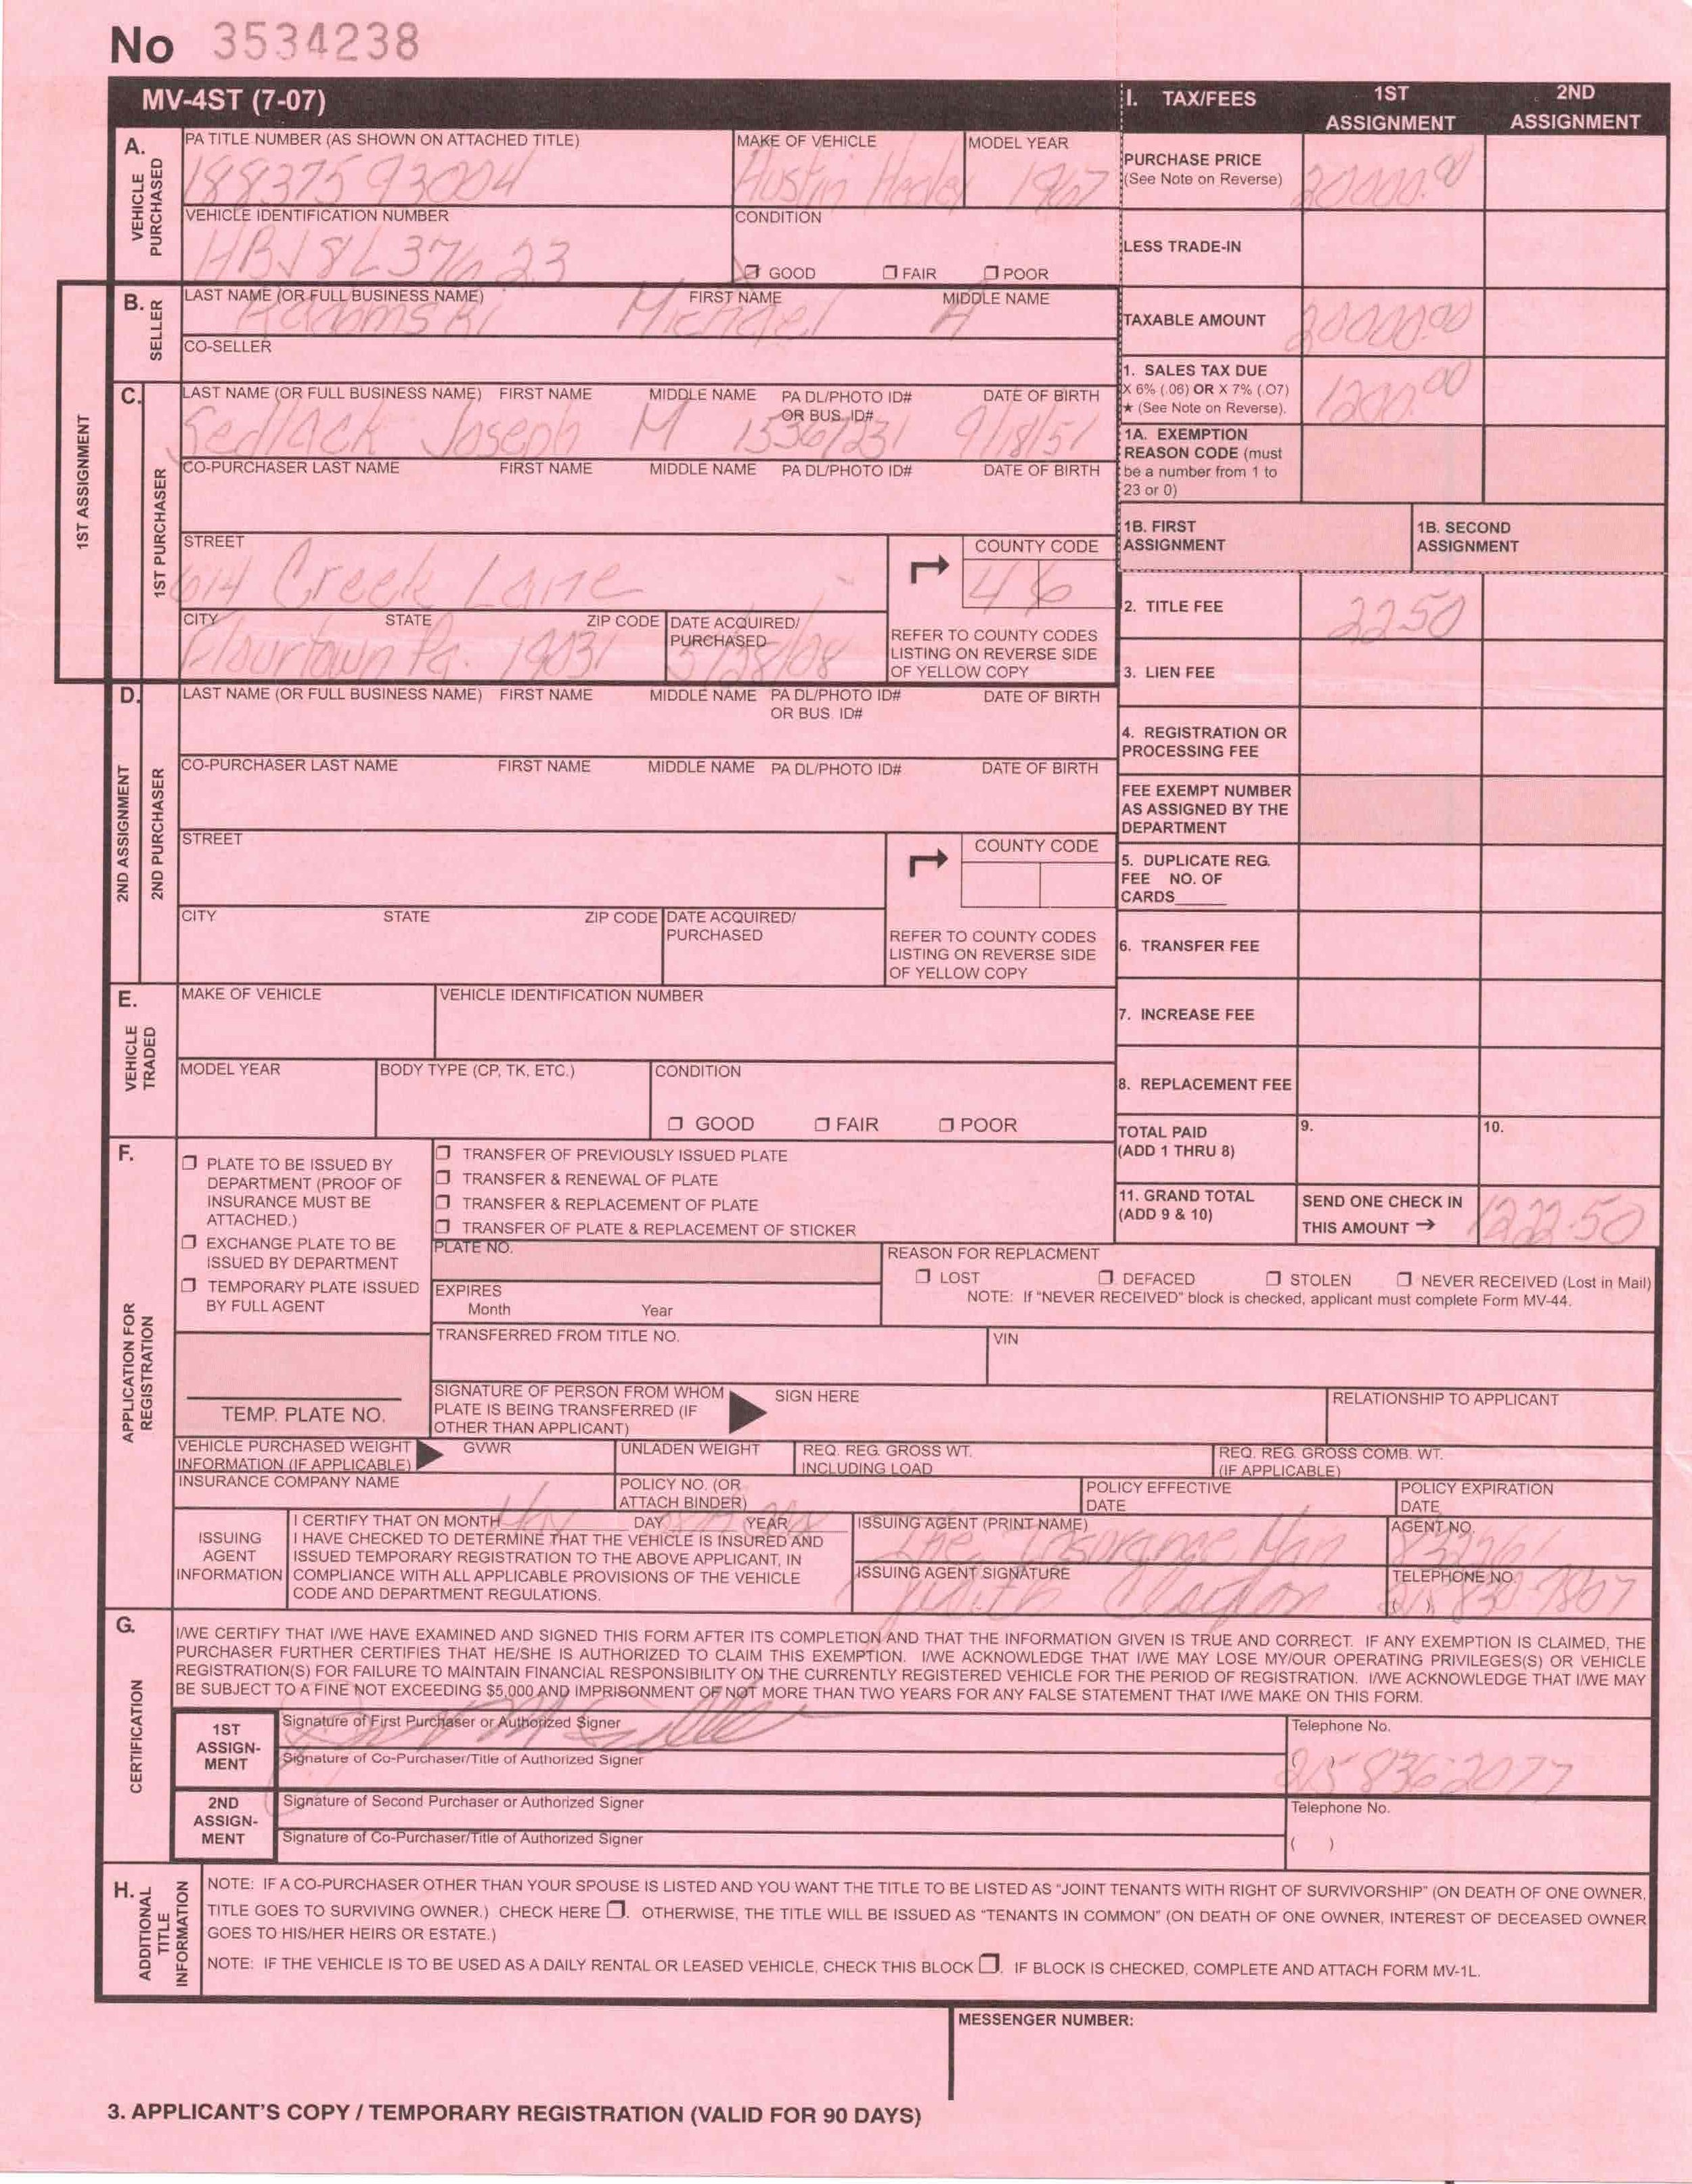 No 3534238
MV-4ST (7-07)
I. TAX/FEES
1ST ASSIGNMENT
2ND ASSIGNMENT
A.
VEHICLE PURCHASED
PA TITLE NUMBER (AS SHOWN ON ATTACHED TITLE)
18837593004
MAKE OF VEHICLE
Austin Healey
MODEL YEAR
1967
PURCHASE PRICE
(See Note on Reverse)
20000.00
VEHICLE IDENTIFICATION NUMBER
HBJ8L37623
CONDITION
GOOD FAIR POOR
LESS TRADE-IN
1ST ASSIGNMENT
B.
SELLER
LAST NAME (OR FULL BUSINESS NAME) FIRST NAME MIDDLE NAME
Michael A
CO-SELLER
TAXABLE AMOUNT
20000.00
C.
1ST PURCHASER
LAST NAME (OR FULL BUSINESS NAME) FIRST NAME MIDDLE NAME PA DL/PHOTO ID# OR BUS. ID# DATE OF BIRTH
Sedlack Joseph M 15367231 9/18/51
1. SALES TAX DUE
X 6% (.06) OR X 7% (.07)
★ (See Note on Reverse).
1200.00
CO-PURCHASER LAST NAME FIRST NAME MIDDLE NAME PA DL/PHOTO ID# DATE OF BIRTH
1A. EXEMPTION
REASON CODE (must
be a number from 1 to
23 or 0)
1B. FIRST ASSIGNMENT
1B. SECOND ASSIGNMENT
STREET
614 Creek Lane
COUNTY CODE
46
2. TITLE FEE
22 50
CITY STATE ZIP CODE
Flourtown Pa. 19031
DATE ACQUIRED/ PURCHASED
5/28/08
REFER TO COUNTY CODES
LISTING ON REVERSE SIDE
OF YELLOW COPY
3. LIEN FEE
2ND ASSIGNMENT
D.
2ND PURCHASER
LAST NAME (OR FULL BUSINESS NAME) FIRST NAME MIDDLE NAME PA DL/PHOTO ID# OR BUS. ID# DATE OF BIRTH
4. REGISTRATION OR
PROCESSING FEE
CO-PURCHASER LAST NAME FIRST NAME MIDDLE NAME PA DL/PHOTO ID# DATE OF BIRTH
FEE EXEMPT NUMBER
AS ASSIGNED BY THE
DEPARTMENT
STREET
COUNTY CODE
5. DUPLICATE REG.
FEE NO. OF
CARDS
CITY STATE ZIP CODE
DATE ACQUIRED/ PURCHASED
REFER TO COUNTY CODES
LISTING ON REVERSE SIDE
OF YELLOW COPY
6. TRANSFER FEE
E.
VEHICLE TRADED
MAKE OF VEHICLE
VEHICLE IDENTIFICATION NUMBER
7. INCREASE FEE
MODEL YEAR
BODY TYPE (CP, TK, ETC.)
CONDITION
GOOD FAIR POOR
8. REPLACEMENT FEE
TOTAL PAID
(ADD 1 THRU 8)
9.
10.
11. GRAND TOTAL
(ADD 9 & 10)
SEND ONE CHECK IN
THIS AMOUNT →
1222.50
F.
APPLICATION FOR REGISTRATION
PLATE TO BE ISSUED BY
DEPARTMENT (PROOF OF
INSURANCE MUST BE
ATTACHED.)
EXCHANGE PLATE TO BE
ISSUED BY DEPARTMENT
TEMPORARY PLATE ISSUED
BY FULL AGENT
TRANSFER OF PREVIOUSLY ISSUED PLATE
TRANSFER & RENEWAL OF PLATE
TRANSFER & REPLACEMENT OF PLATE
TRANSFER OF PLATE & REPLACEMENT OF STICKER
PLATE NO.
REASON FOR REPLACMENT
LOST DEFACED STOLEN NEVER RECEIVED (Lost in Mail)
NOTE: If "NEVER RECEIVED" block is checked, applicant must complete Form MV-44.
EXPIRES
Month Year
TRANSFERRED FROM TITLE NO.
VIN
TEMP. PLATE NO.
SIGNATURE OF PERSON FROM WHOM
PLATE IS BEING TRANSFERRED (IF
OTHER THAN APPLICANT)
SIGN HERE
RELATIONSHIP TO APPLICANT
VEHICLE PURCHASED WEIGHT
INFORMATION (IF APPLICABLE)
GVWR
UNLADEN WEIGHT
REQ. REG. GROSS WT.
INCLUDING LOAD
REQ. REG. GROSS COMB. WT.
(IF APPLICABLE)
INSURANCE COMPANY NAME
POLICY NO. (OR
ATTACH BINDER)
POLICY EFFECTIVE
DATE
POLICY EXPIRATION
DATE
ISSUING
AGENT
INFORMATION
I CERTIFY THAT ON MONTH DAY YEAR
I HAVE CHECKED TO DETERMINE THAT THE VEHICLE IS INSURED AND
ISSUED TEMPORARY REGISTRATION TO THE ABOVE APPLICANT, IN
COMPLIANCE WITH ALL APPLICABLE PROVISIONS OF THE VEHICLE
CODE AND DEPARTMENT REGULATIONS.
ISSUING AGENT (PRINT NAME)
The Insurance Man
AGENT NO.
ISSUING AGENT SIGNATURE
Judith
TELEPHONE NO.
G.
CERTIFICATION
I/WE CERTIFY THAT I/WE HAVE EXAMINED AND SIGNED THIS FORM AFTER ITS COMPLETION AND THAT THE INFORMATION GIVEN IS TRUE AND CORRECT. IF ANY EXEMPTION IS CLAIMED, THE
PURCHASER FURTHER CERTIFIES THAT HE/SHE IS AUTHORIZED TO CLAIM THIS EXEMPTION. I/WE ACKNOWLEDGE THAT I/WE MAY LOSE MY/OUR OPERATING PRIVILEGES(S) OR VEHICLE
REGISTRATION(S) FOR FAILURE TO MAINTAIN FINANCIAL RESPONSIBILITY ON THE CURRENTLY REGISTERED VEHICLE FOR THE PERIOD OF REGISTRATION. I/WE ACKNOWLEDGE THAT I/WE MAY
BE SUBJECT TO A FINE NOT EXCEEDING $5,000 AND IMPRISONMENT OF NOT MORE THAN TWO YEARS FOR ANY FALSE STATEMENT THAT I/WE MAKE ON THIS FORM.
1ST
ASSIGN-
MENT
Signature of First Purchaser or Authorized Signer
Signature of Co-Purchaser/Title of Authorized Signer
Telephone No.
215 836 2077
2ND
ASSIGN-
MENT
Signature of Second Purchaser or Authorized Signer
Signature of Co-Purchaser/Title of Authorized Signer
Telephone No.
( )
H.
ADDITIONAL TITLE INFORMATION
NOTE: IF A CO-PURCHASER OTHER THAN YOUR SPOUSE IS LISTED AND YOU WANT THE TITLE TO BE LISTED AS "JOINT TENANTS WITH RIGHT OF SURVIVORSHIP" (ON DEATH OF ONE OWNER,
TITLE GOES TO SURVIVING OWNER.) CHECK HERE . OTHERWISE, THE TITLE WILL BE ISSUED AS "TENANTS IN COMMON" (ON DEATH OF ONE OWNER, INTEREST OF DECEASED OWNER
GOES TO HIS/HER HEIRS OR ESTATE.)
NOTE: IF THE VEHICLE IS TO BE USED AS A DAILY RENTAL OR LEASED VEHICLE, CHECK THIS BLOCK . IF BLOCK IS CHECKED, COMPLETE AND ATTACH FORM MV-1L.
MESSENGER NUMBER:
3. APPLICANT'S COPY / TEMPORARY REGISTRATION (VALID FOR 90 DAYS)